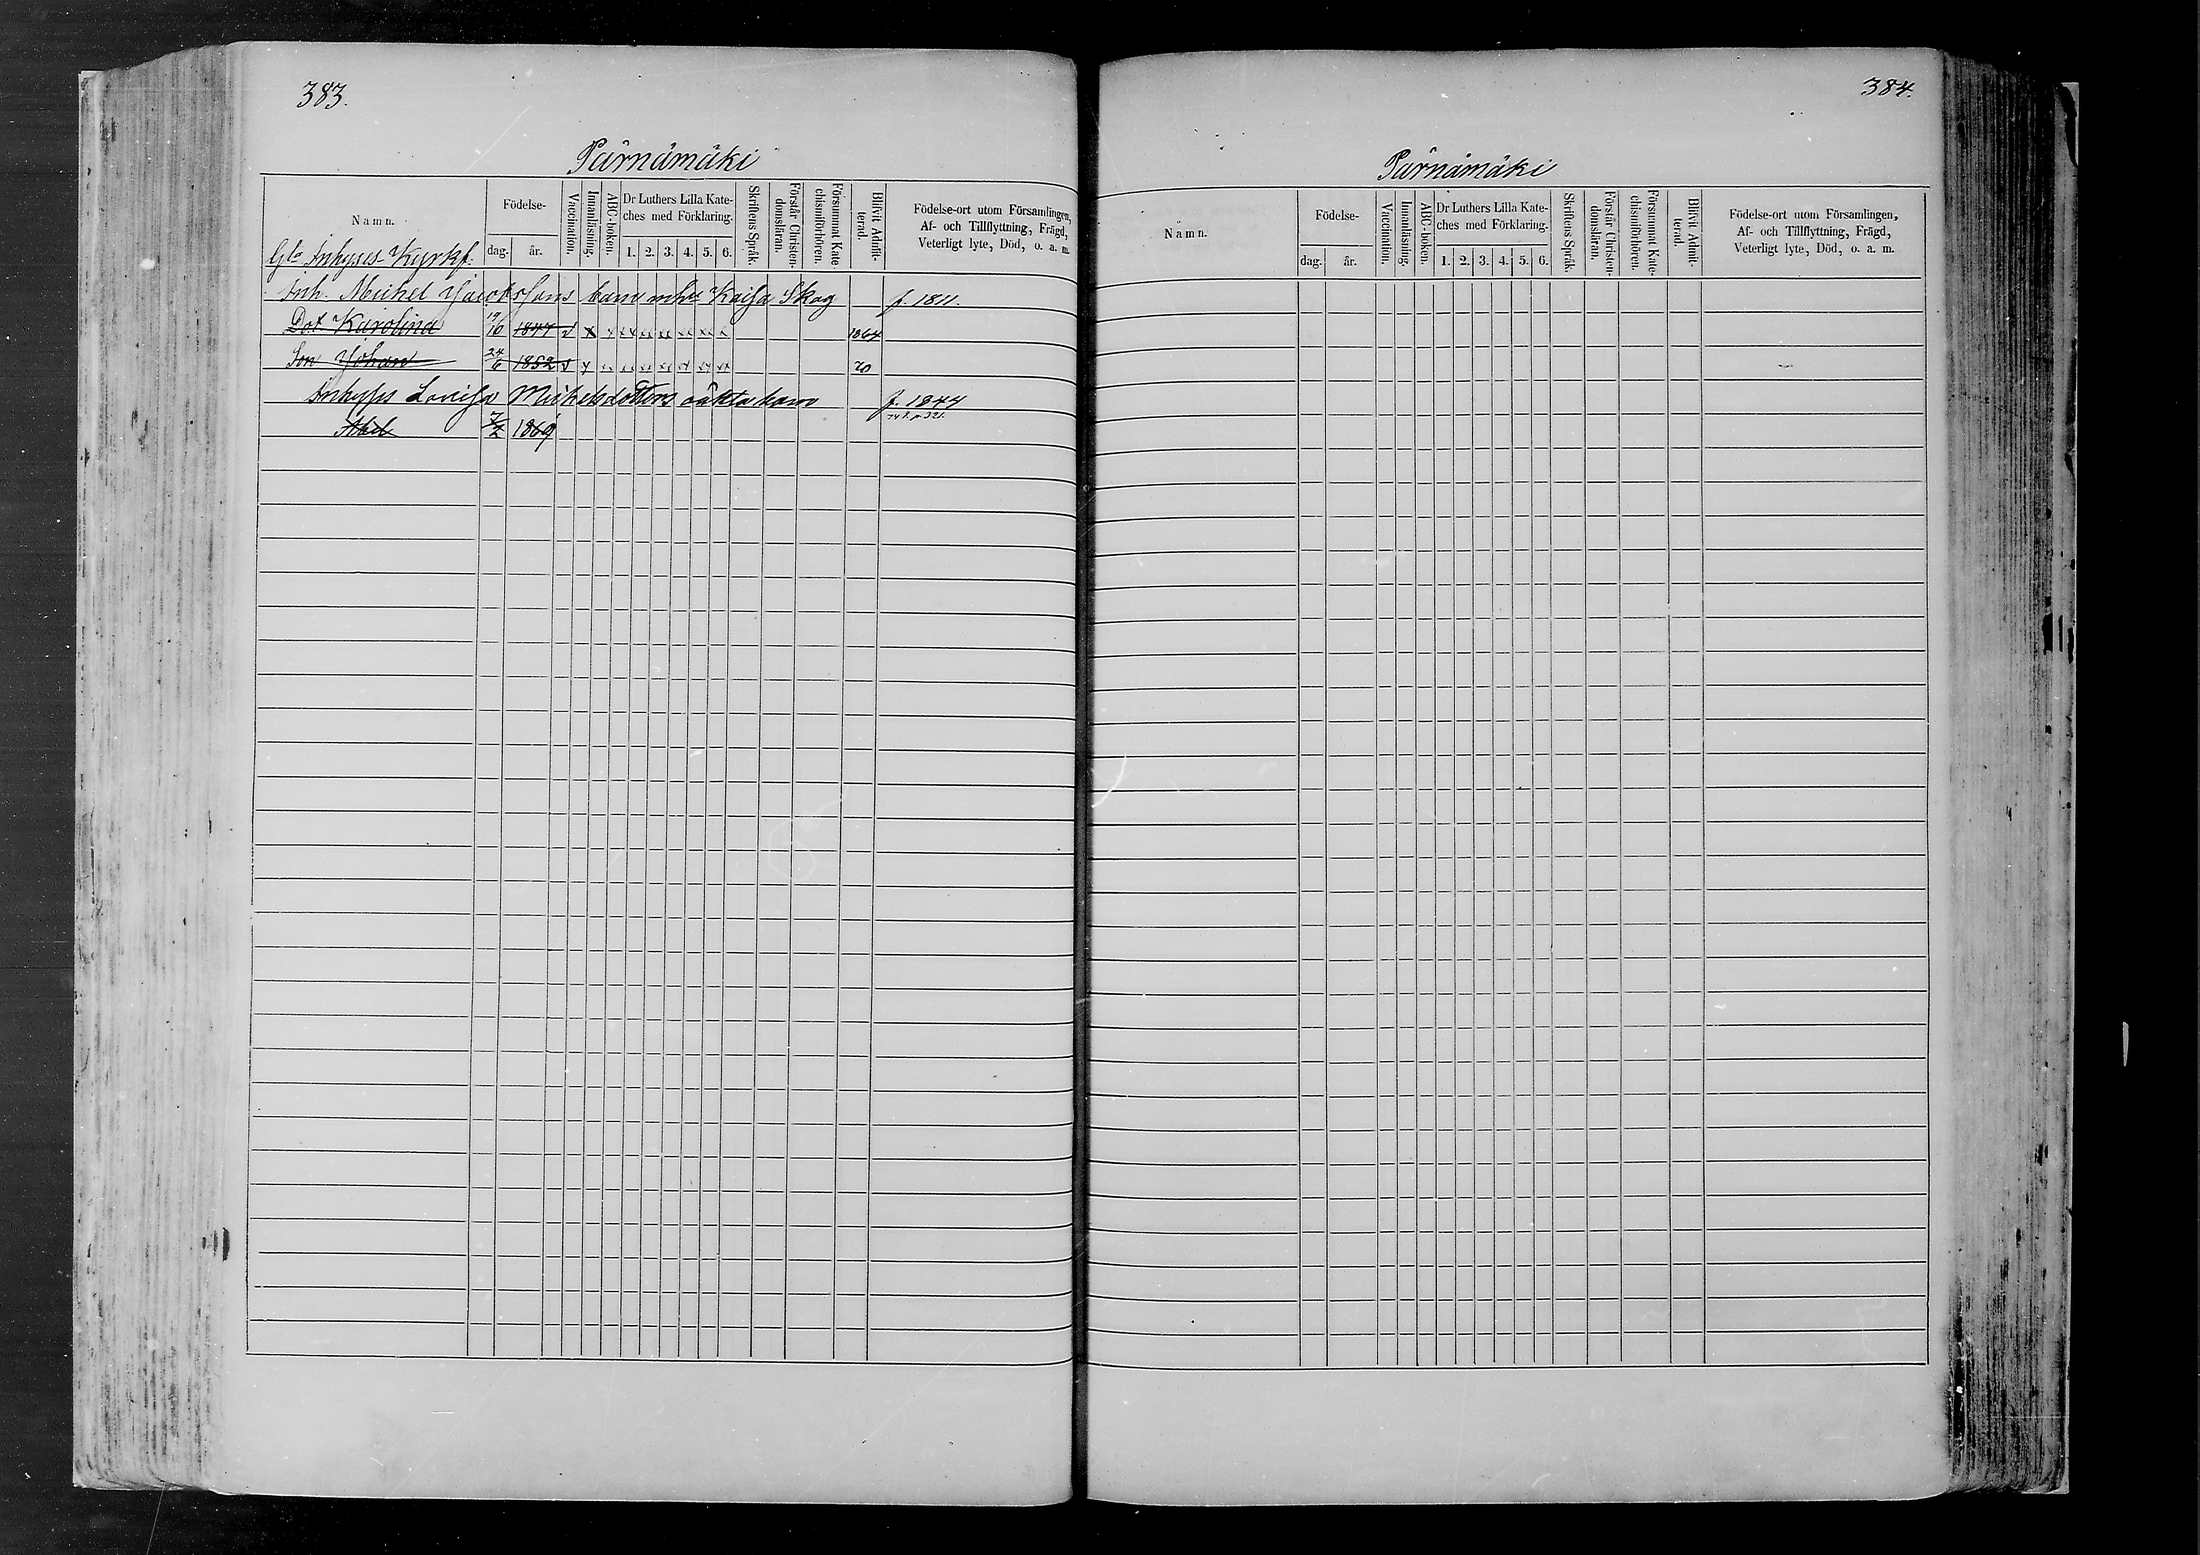 383.
Pärnämäki
Namn.
Födelse-
dag.
år.
Vaccination.
Innanläsning.
ABC-boken.
Dr Luthers Lilla Kate-
ches med Förklaring.
1. 2. 3. 4. 5. 6.
Skriftens Språk.
Förstår Christen-
domsläran.
Försummat Kate-
chismiförhören.
Blifvit Admit-
terad.
Födelse-ort utom Församlingen,
Af- och Tillflyttning, Frägd,
Veterligt lyte, Död, o. a. m.
Inhyses Kyrkf.
Inh. Michel Jacobssons barn m hu Kaisa Skog f. 1811.
Dot Karolina 19/10 1847 v x x xx xx xx xx xx x 1864
Son Johan 24/6 1852 v x xx xx xx xx xx xx xx 70
Inhyses Lovisa Michelsdotters oäkta barn f. 1844
Abel 1869
384.
Pärnämäki
Namn.
Födelse-
dag.
år.
Vaccination.
Innanläsning.
ABC-boken.
Dr Luthers Lilla Kate-
ches med Förklaring.
1. 2. 3. 4. 5. 6.
Skriftens Språk.
Förstår Christen-
domsläran.
Försummat Kate-
chismiförhören.
Blifvit Admit-
terad.
Födelse-ort utom Församlingen,
Af- och Tillflyttning, Frägd,
Veterligt lyte, Död, o. a. m.